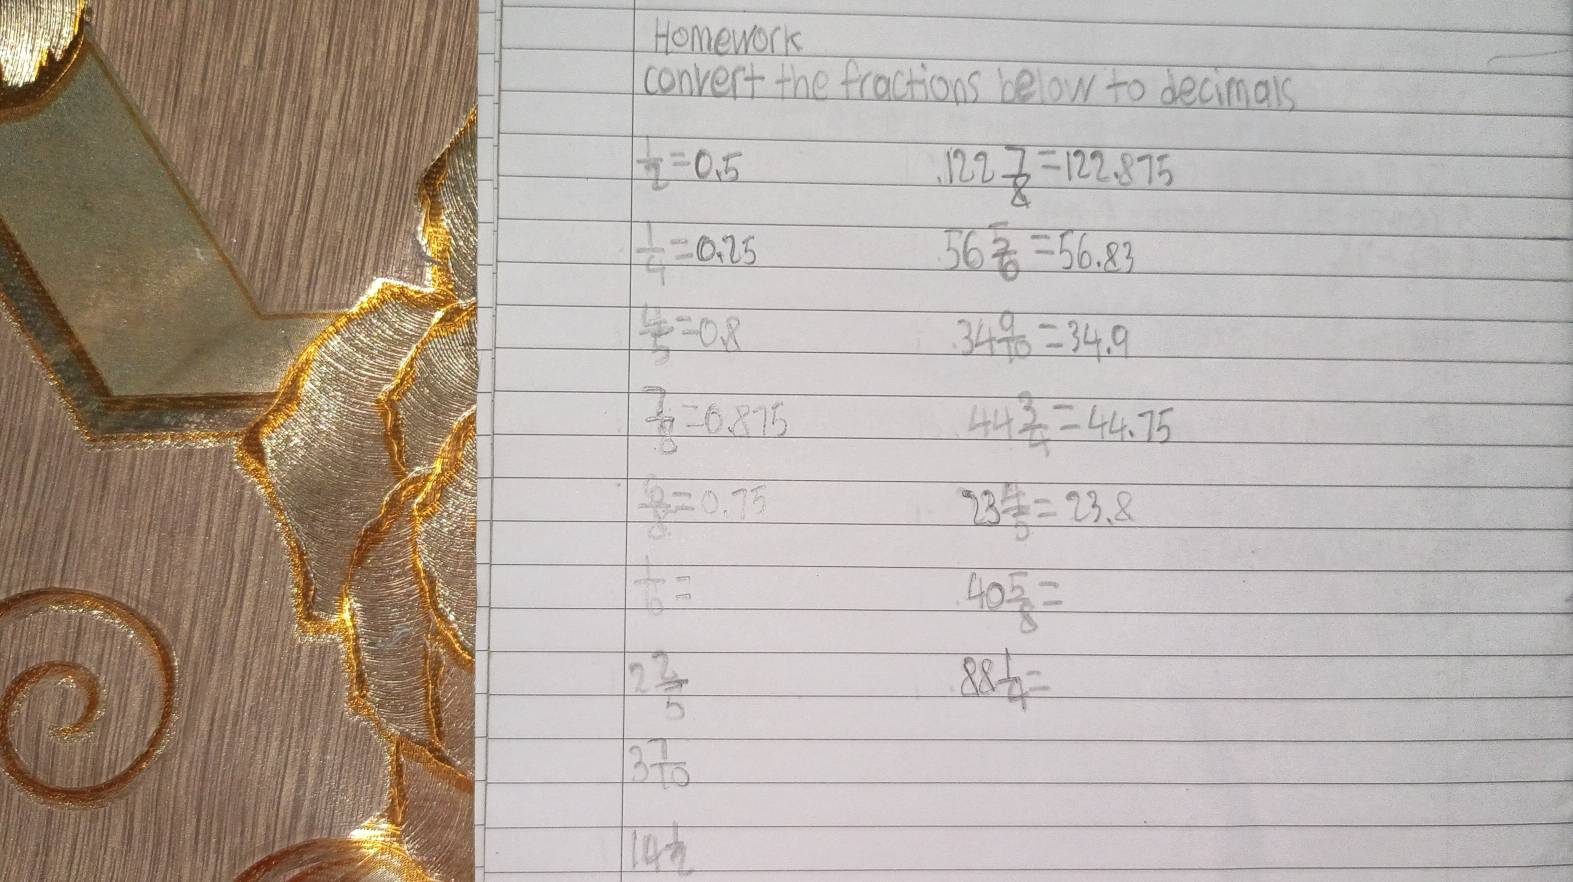 Homework
convert the fractions below to decimals
1/2 = 0.5
1/4 = 0.25
4/5 = 0.8
7/8 = 0.875
6/8 = 0.75
1/6 =
2 2/5
3 7/10
14 1/2
122 7/8 = 122.875
56 5/6 = 56.83
34 9/10 = 34.9
44 3/4 = 44.75
23 4/5 = 23.8
40 5/8 =
88 1/4 =